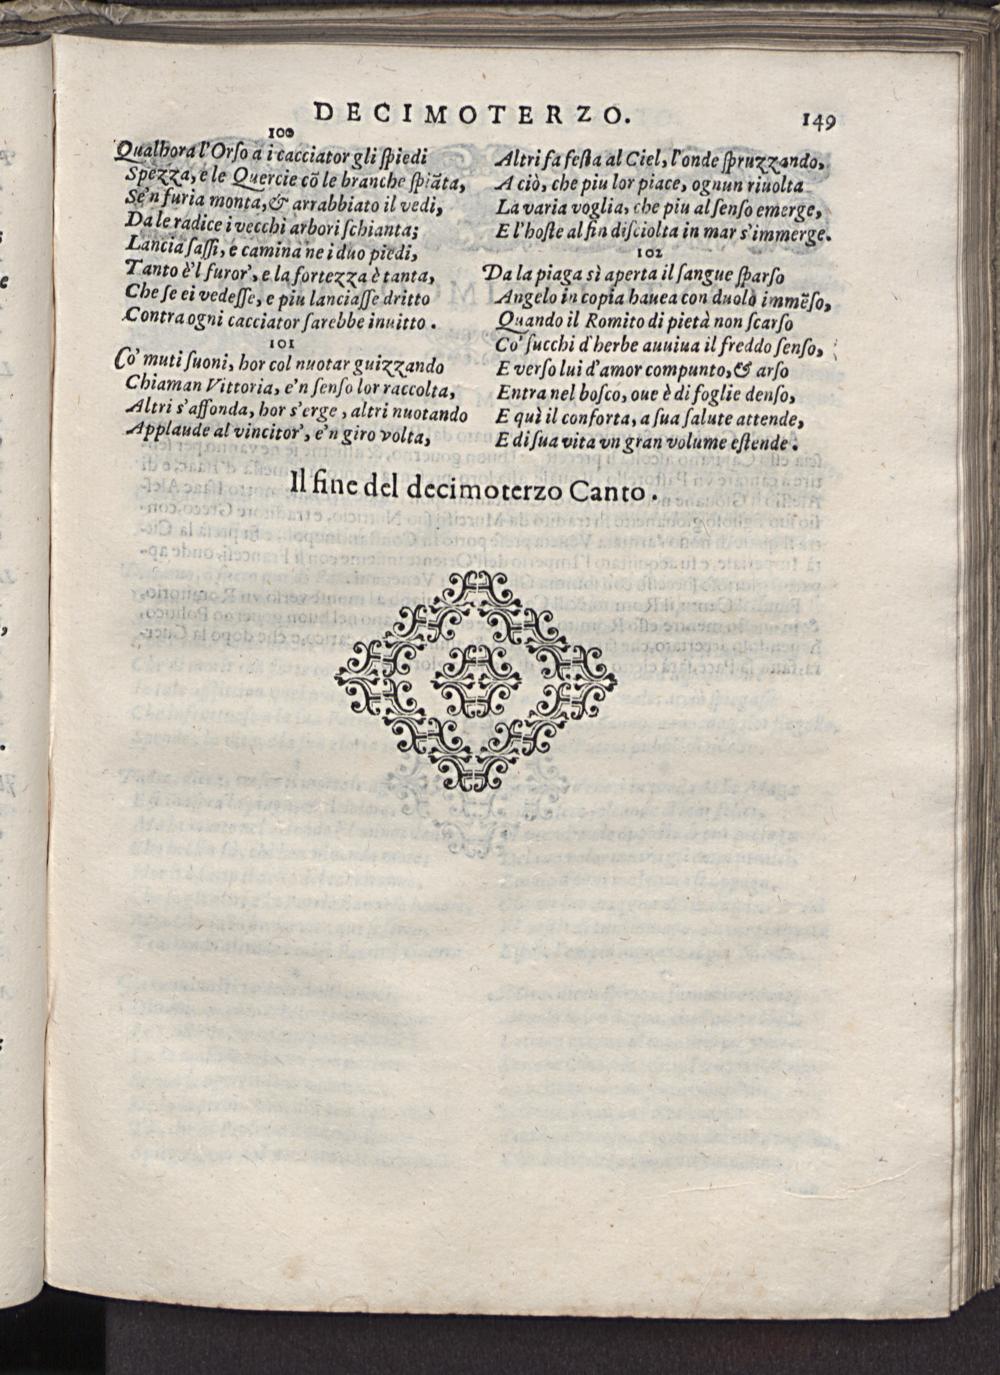 DECIMOTERZO. 149
100
Qualhora l'Orſo a i cacciator gli ſpiedi
Spezza, e le Quercie cõ le branche ſpiãta,
Se'n furia monta, & arrabbiato il vedi,
Da le radice i vecchi arbori ſchianta;
Lancia ſaſſi, e camina ne i duo piedi,
Tanto è'l furor', e la fortezza è tanta,
Che ſe ei vedeſſe, e piu lanciaſſe dritto
Contra ogni cacciator ſarebbe inuitto.
101
Co' muti ſuoni, hor col nuotar guizzando
Chiaman Vittoria, e'n ſenſo lor raccolta,
Altri s'affonda, hor s'erge, altri nuotando
Applaude al vincitor', e'n giro volta,
Altri fa feſta al Ciel, l'onde ſpruzzando,
A ciò, che piu lor piace, ognun riuolta
La varia voglia, che piu al ſenſo emerge,
E l'hoſte al fin diſciolta in mar s'immerge.
102
Da la piaga sì aperta il ſangue ſparſo
Angelo in copia hauea con duolo immẽſo,
Quando il Romito di pietà non ſcarſo
Co' ſucchi d'herbe auuiua il freddo ſenſo,
E verſo lui d'amor compunto, & arſo
Entra nel boſco, oue è di foglie denſo,
E quì il conforta, a ſua ſalute attende,
E di ſua vita vn gran volume eſtende.
Il fine del decimoterzo Canto.